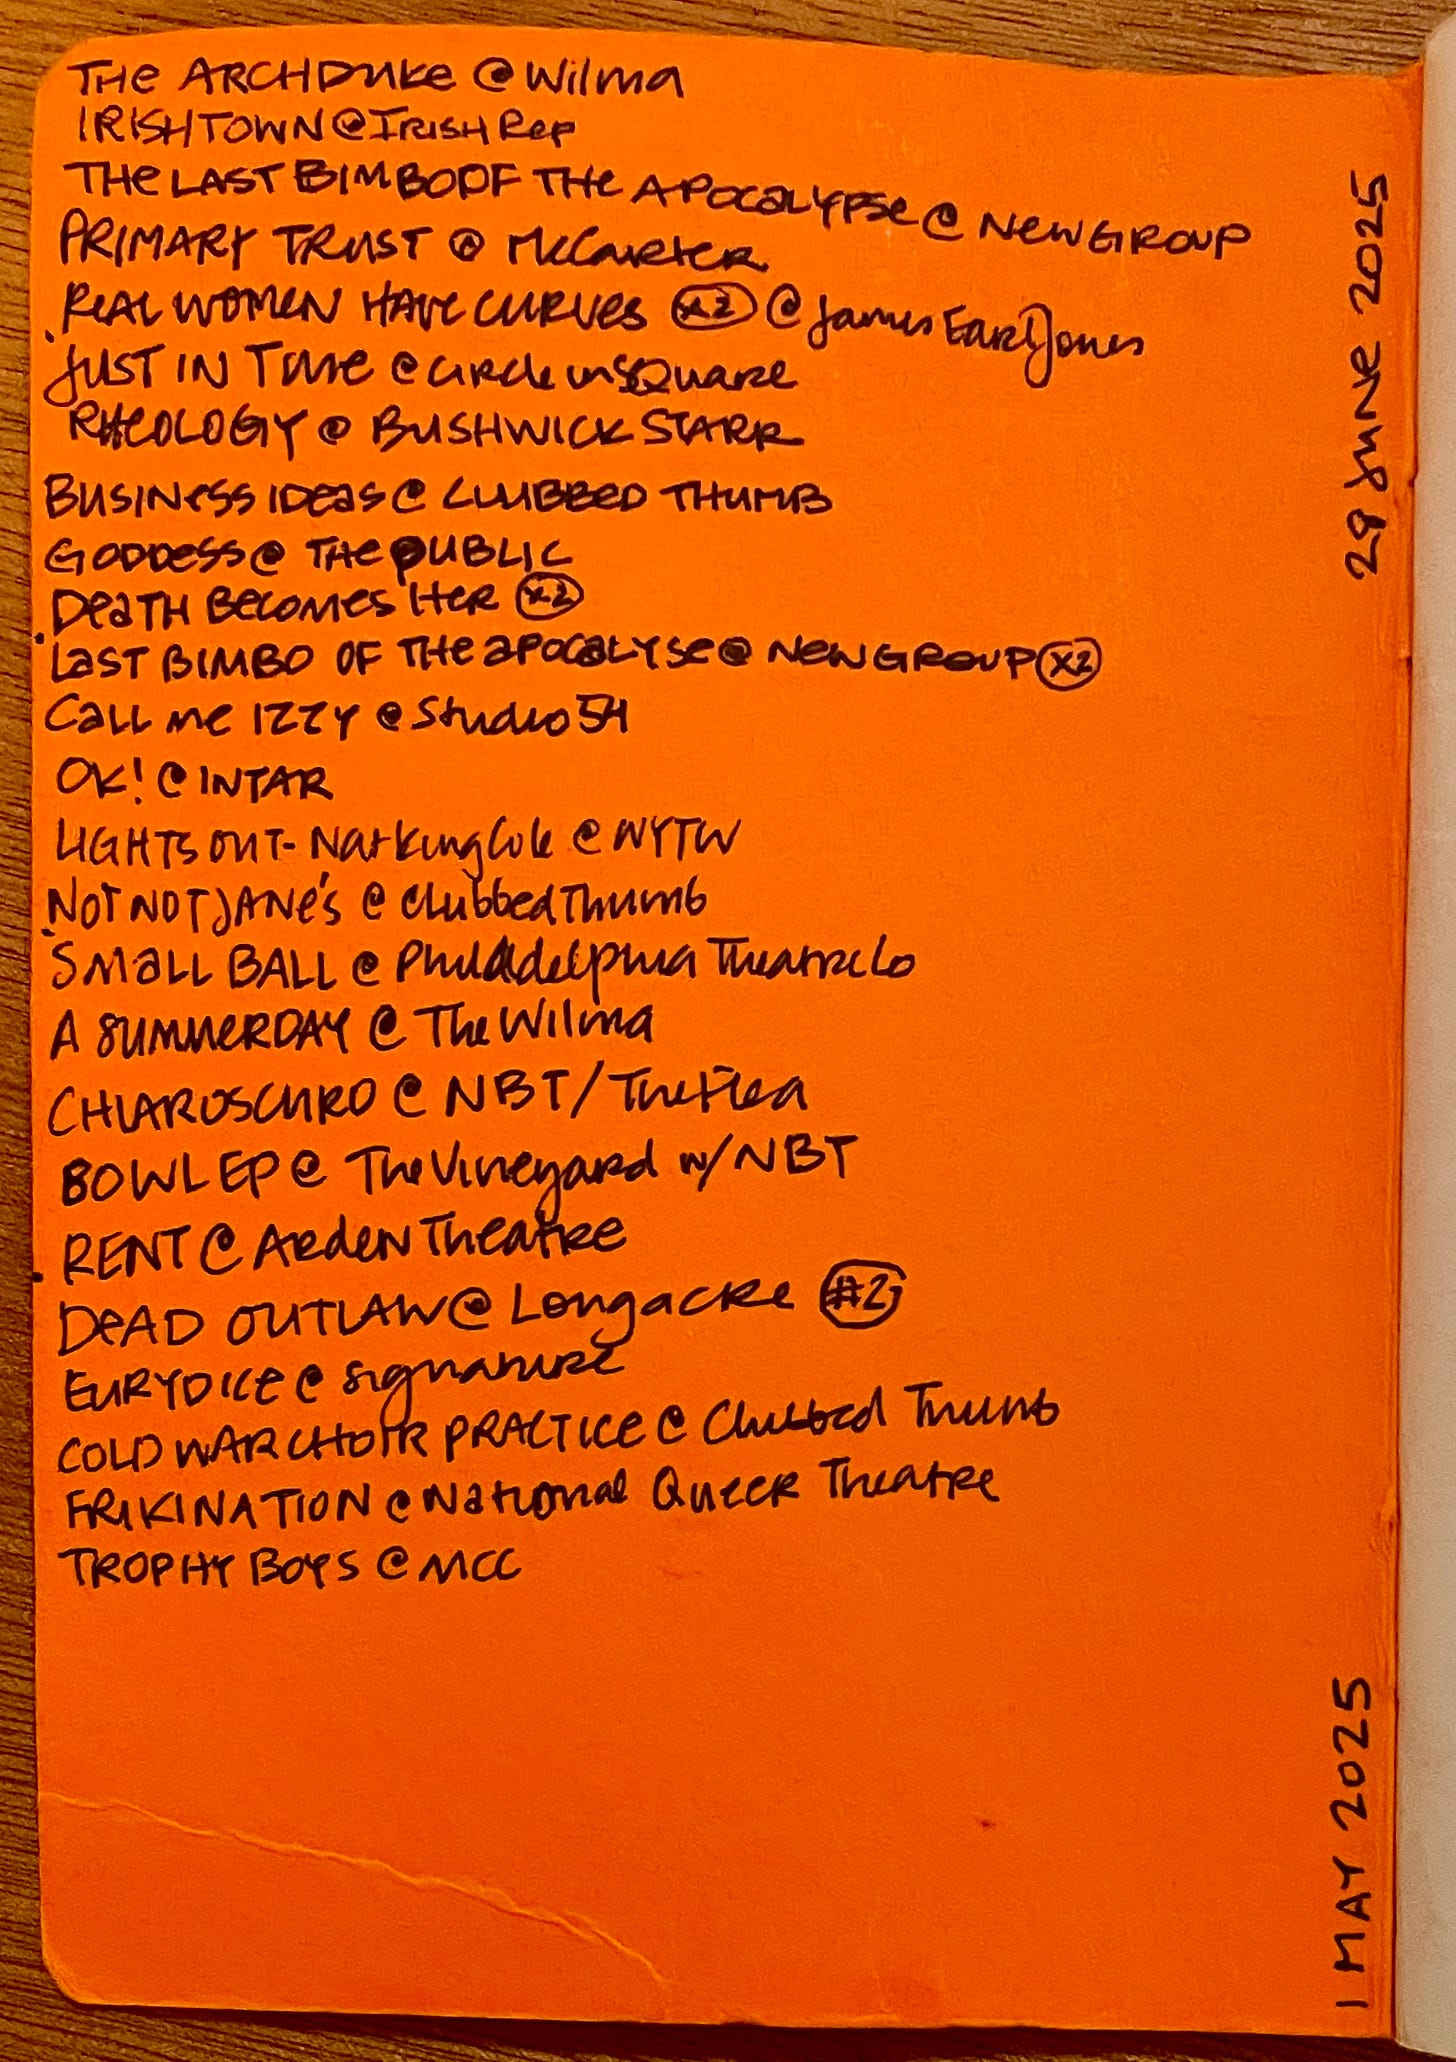 THE ARCHDUKE @ Wilma
IRISHTOWN @ IRISH Rep
THE LAST BIMBO OF THE APOCALYPSE @ NEW GROUP
PRIMARY TRUST @ McCarter
. REAL WOMEN HAVE CURVES x2 @ James Earl Jones
JUST IN TIME @ Circle in SQUARE
RHEOLOGY @ BUSHWICK STARR
BUSINESS IDEAS @ CLUBBED THUMB
GODDESS @ THE PUBLIC
. DEATH BECOMES HER x2
LAST BIMBO OF THE APOCALYSE @ NEW GROUP x2
CALL ME IZZY @ Studio 54
OK! @ INTAR
LIGHTS OUT - Nat King Cole @ NYTW
NOT NOT JANE'S @ Clubbed Thumb
. SMALL BALL @ Philadelphia Theatre Co
A SUMMER DAY @ The Wilma
CHIAROSCURO @ NBT / The Flea
BOWL EP @ The Vineyard w/ NBT
RENT @ Arden Theatre
. DEAD OUTLAW @ Longacre #2
EURYDICE @ Signature
COLD WAR CHOIR PRACTICE @ Clubbed Thumb
FRIKINATION @ National Queer Theatre
TROPHY BOYS @ MCC
29 JUNE 2025
1 MAY 2025